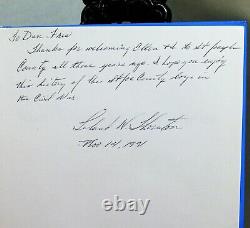 To Dave & Fran
Thanks for welcoming Ellen & I to St Joseph
County all those years ago. I hope you enjoy
this history of the St Joe County boys in
the Civil War.
Leland W. Thornton
Nov 14, 1991